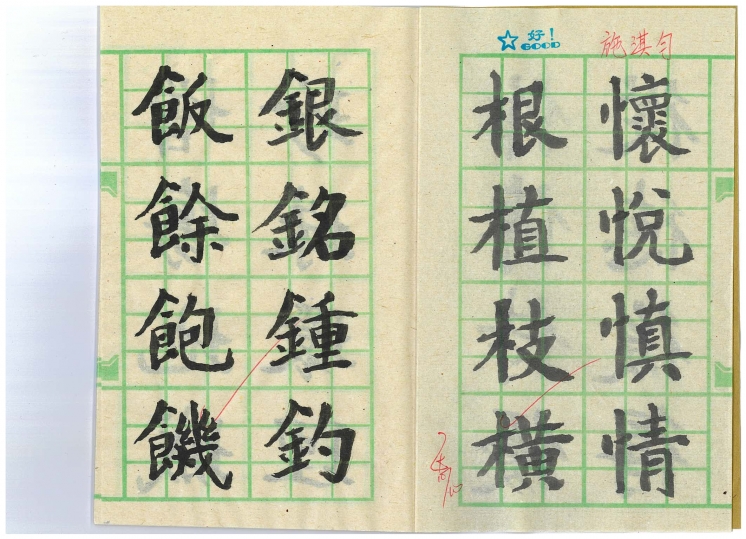 好!
GOOD
施淇勻
懷悅慎情
根植枝橫
銀銘鍾釣
飯餘飽饑